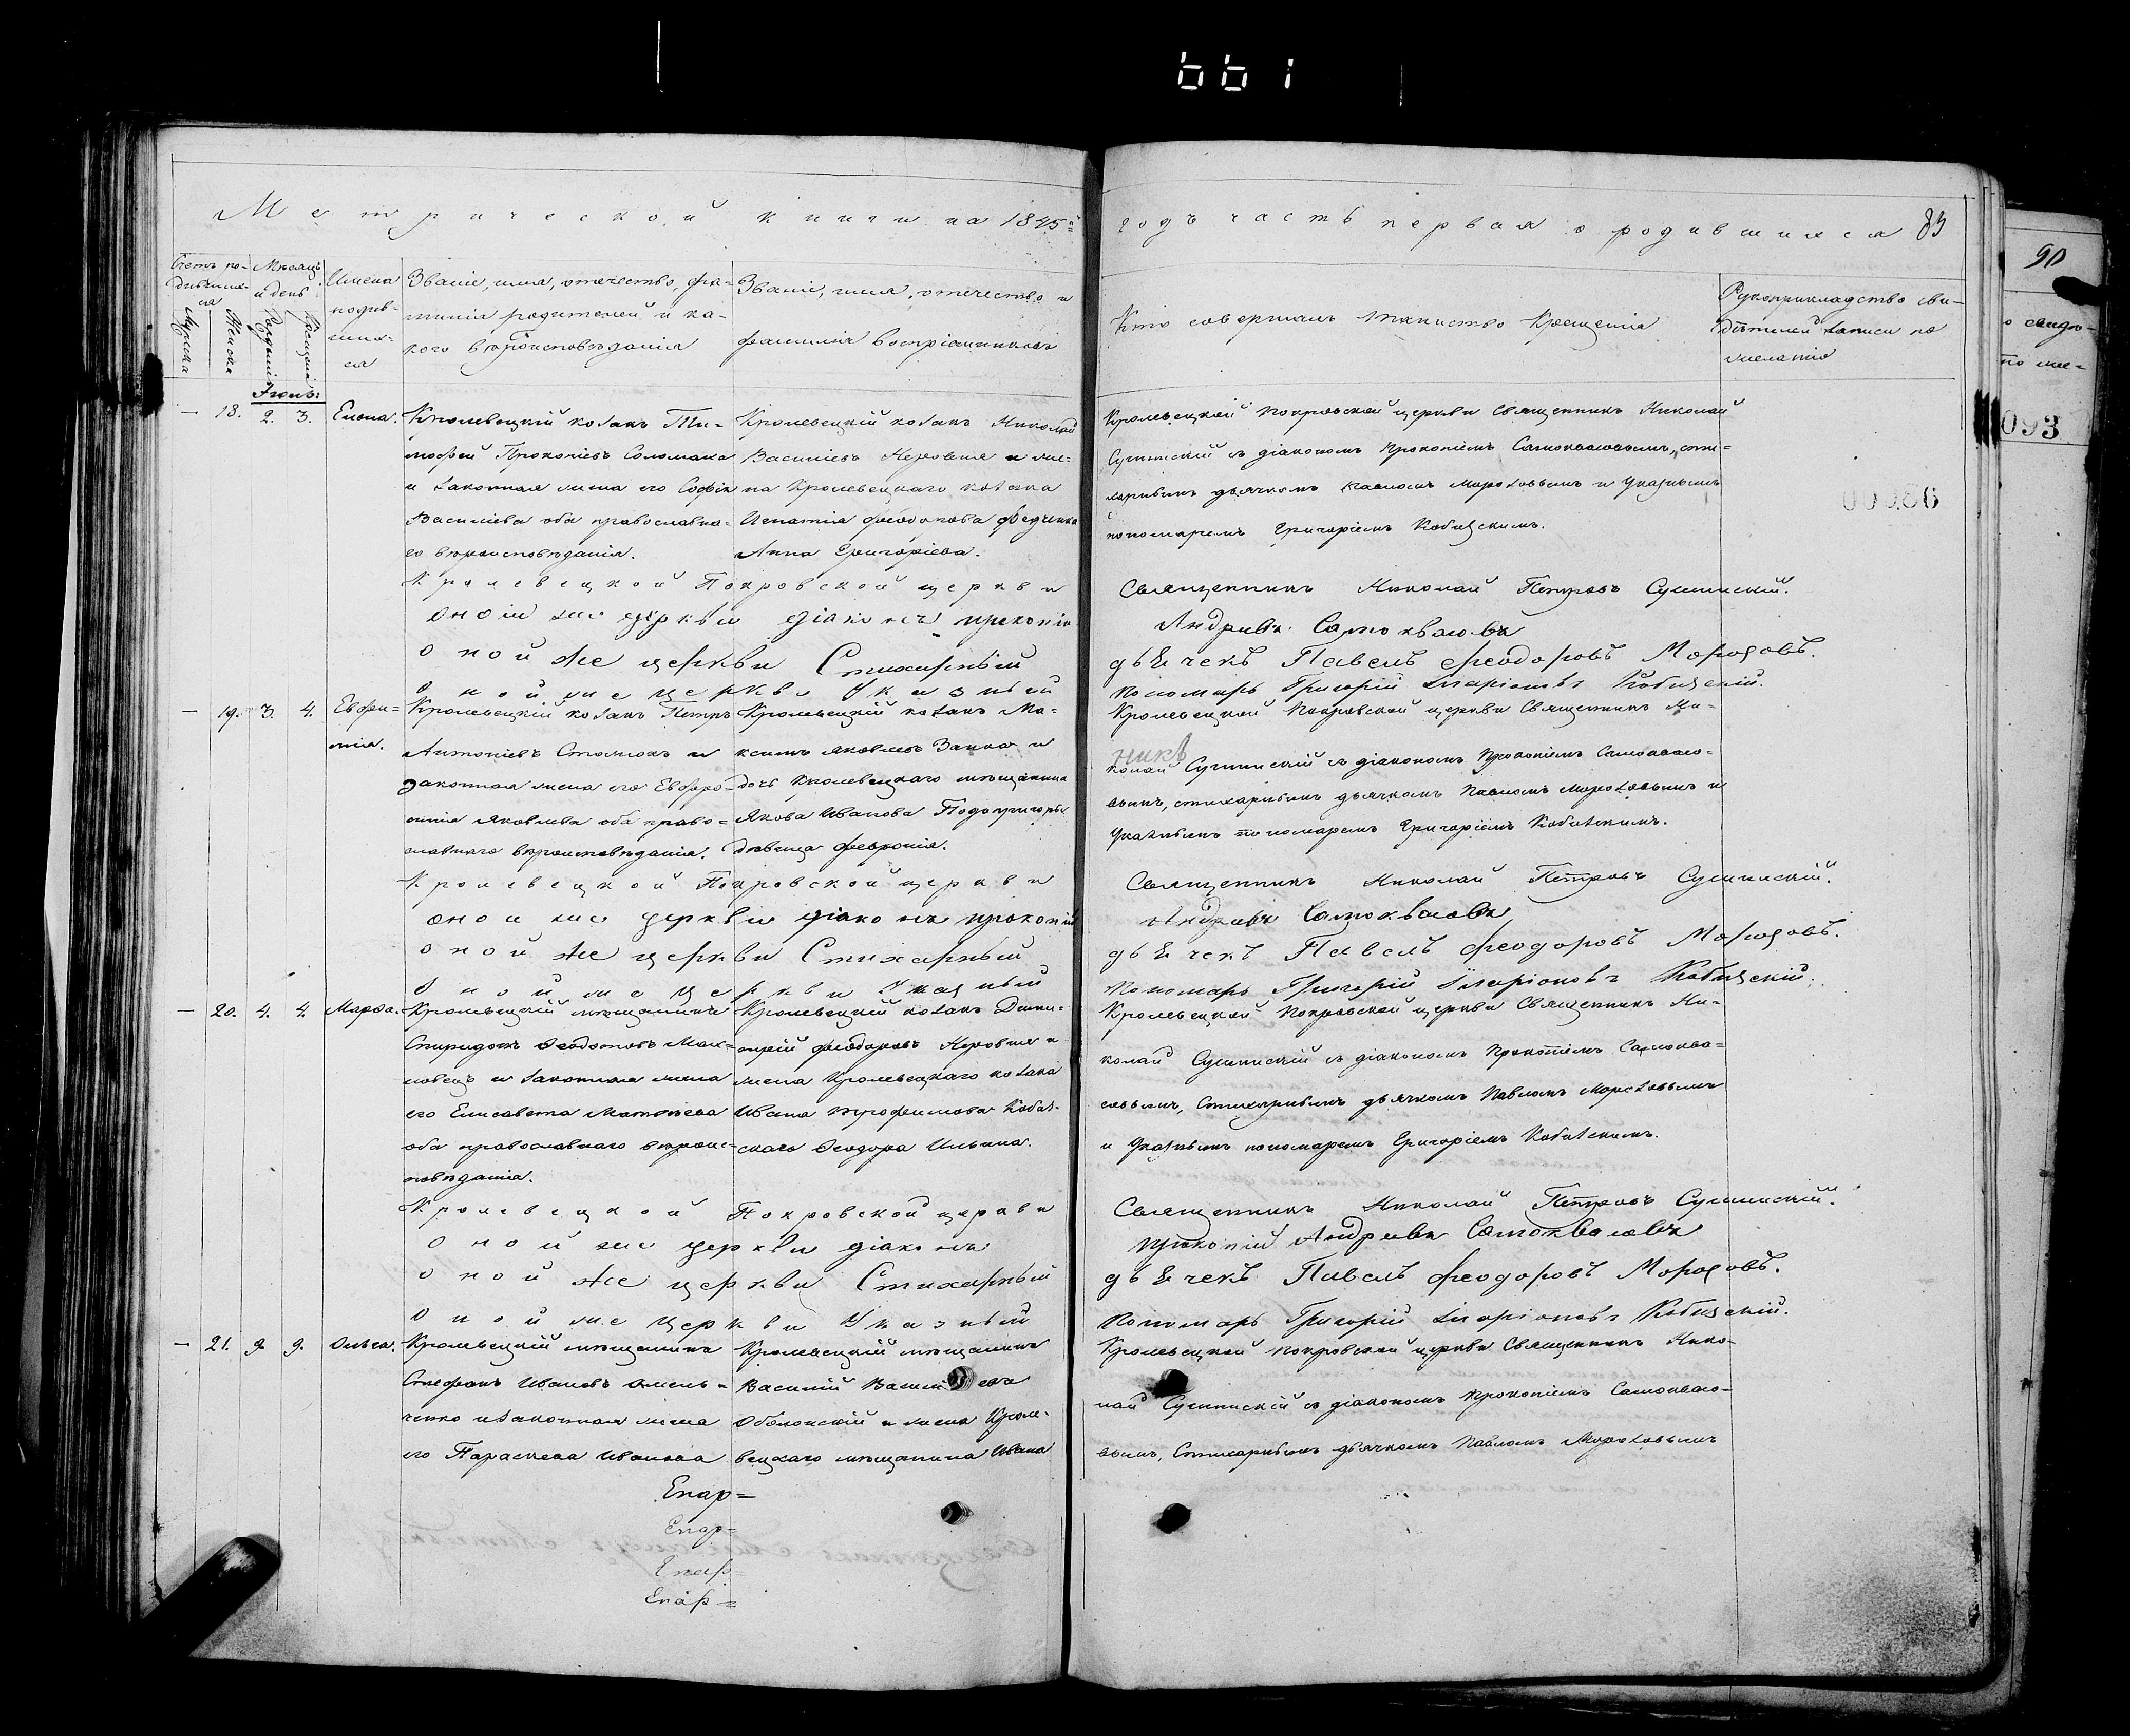 661
Метрической книги на 1845й
годъ часть первая о родившихся 89
90
Счетъ ро-
дившихся
Мужска
Женска
Мѣсяцъ
и день
Рожденія
Крещенія
Имена
родив-
шихся
Званіе, имя, отечество, фа-
милія родителей и ка-
кого вѣроисповѣданія
Званіе, имя, отечество и
фамилія воспріемниковъ
Кто совершалъ таинство Крещенія
Рукоприкладство сви-
дѣтелей записи по
желанію
093
00086
Іюнь:
— 18. 2. 3. Елена.
Кролевецкій козакъ Ти-
мофей Прокопіевъ Соломаха
и законная жена его Софія
Василіева оба православна-
го вѣроисповѣданія.
Кролевецкій козакъ Николай
Василіевъ Неровня и же-
на Кролевецкаго козака
Игнатія Феодорова Федченка
Анна Григоріева.
Кролевецкой Покровской церкви Священникъ Николай
Сушинскій съ діакономъ Прокопіемъ Самоквасовымъ, сти-
харнымъ дьячкомъ Павломъ Морозовымъ и Указнымъ
пономаремъ Григоріемъ Кобизскимъ.
Кролевецкой Покровской церкви Священникъ Николай Петровъ Сушинскій.
оной же церкви діаконъ прокопій Андреевъ Самоквасовъ
оной же церкви Стихарный дьячекъ Павелъ Феодоровъ Морозовъ.
оной же церкви Указный Пономарь Григорій Иларіоновъ Кобизскій.
— 19. 3. 4. Евфи-
мія.
Кролевецкій козакъ Петръ
Антоніевъ
законная жена его Евфро-
синія Яковлева оба право-
славнаго вѣроисповѣданія.
Кролевецкій козакъ Ма-
ксимъ Яковлевъ Заика и
дочь Кролевецкаго мѣщанина
Якова Иванова Подопригоры
дѣвица Февронія.
Кролевецкой Покровской церкви Священникъ Ни-
колай Сушинскій съ діакономъ Прокопіемъ Самоквасо-
вымъ, стихарнымъ дьячкомъ Павломъ Морозовымъ и
Указнымъ пономаремъ Григоріемъ Кобизскимъ.
Кролевецкой Покровской церкви Священникъ Николай Петровъ Сушинскій.
оной же церкви діаконъ прокопій Андреевъ Самоквасовъ
оной же церкви Стихарный дьячекъ Павелъ Феодоровъ Морозовъ.
оной же церкви Указный Пономарь Григорій Иларіоновъ Кобизскій.
— 20. 4. 4. Марѳа.
Кролевецкій мѣщанинъ
Спиридонъ Ѳеодотовъ
и законная жена
его Елисавета Матѳіева
оба православнаго вѣроис-
повѣданія.
Кролевецкій козакъ Дими-
трій Феодоровъ Неровня и
жена Кролевецкаго козака
Ивана Трофимова Кобиз-
скаго Ѳеодора Ильина.
Кролевецкой Покровской церкви Священникъ Ни-
колай Сушинскій съ діакономъ Прокопіемъ Самоква-
совымъ, Стихарнымъ дьячкомъ Павломъ Морозовымъ
и Указнымъ пономаремъ Григоріемъ Кобизскимъ.
Кролевецкой Покровской церкви Священникъ Николай Петровъ Сушинскій.
оной же церкви діаконъ прокопій Андреевъ Самоквасовъ
оной же церкви Стихарный дьячекъ Павелъ Феодоровъ Морозовъ.
оной же церкви Указный Пономарь Григорій Иларіоновъ Кобизскій.
— 21. 9. 9. Ольга.
Кролевецкій мѣщанинъ
Стефанъ Ивановъ Омель-
ченко и законная жена
его Параскева Иванова
Кролевецкій мѣщанинъ
Василій Василіевъ
Оболонскій и жена Кроле-
вецкаго мѣщанина Ивана
Кролевецкой Покровской церкви Священникъ Нико-
лай Сушинскій съ діакономъ Прокопіемъ Самоквасо-
вымъ, Стихарнымъ дьячкомъ Павломъ Морозовымъ
Епар=
Епар=
Епар=
Епар=